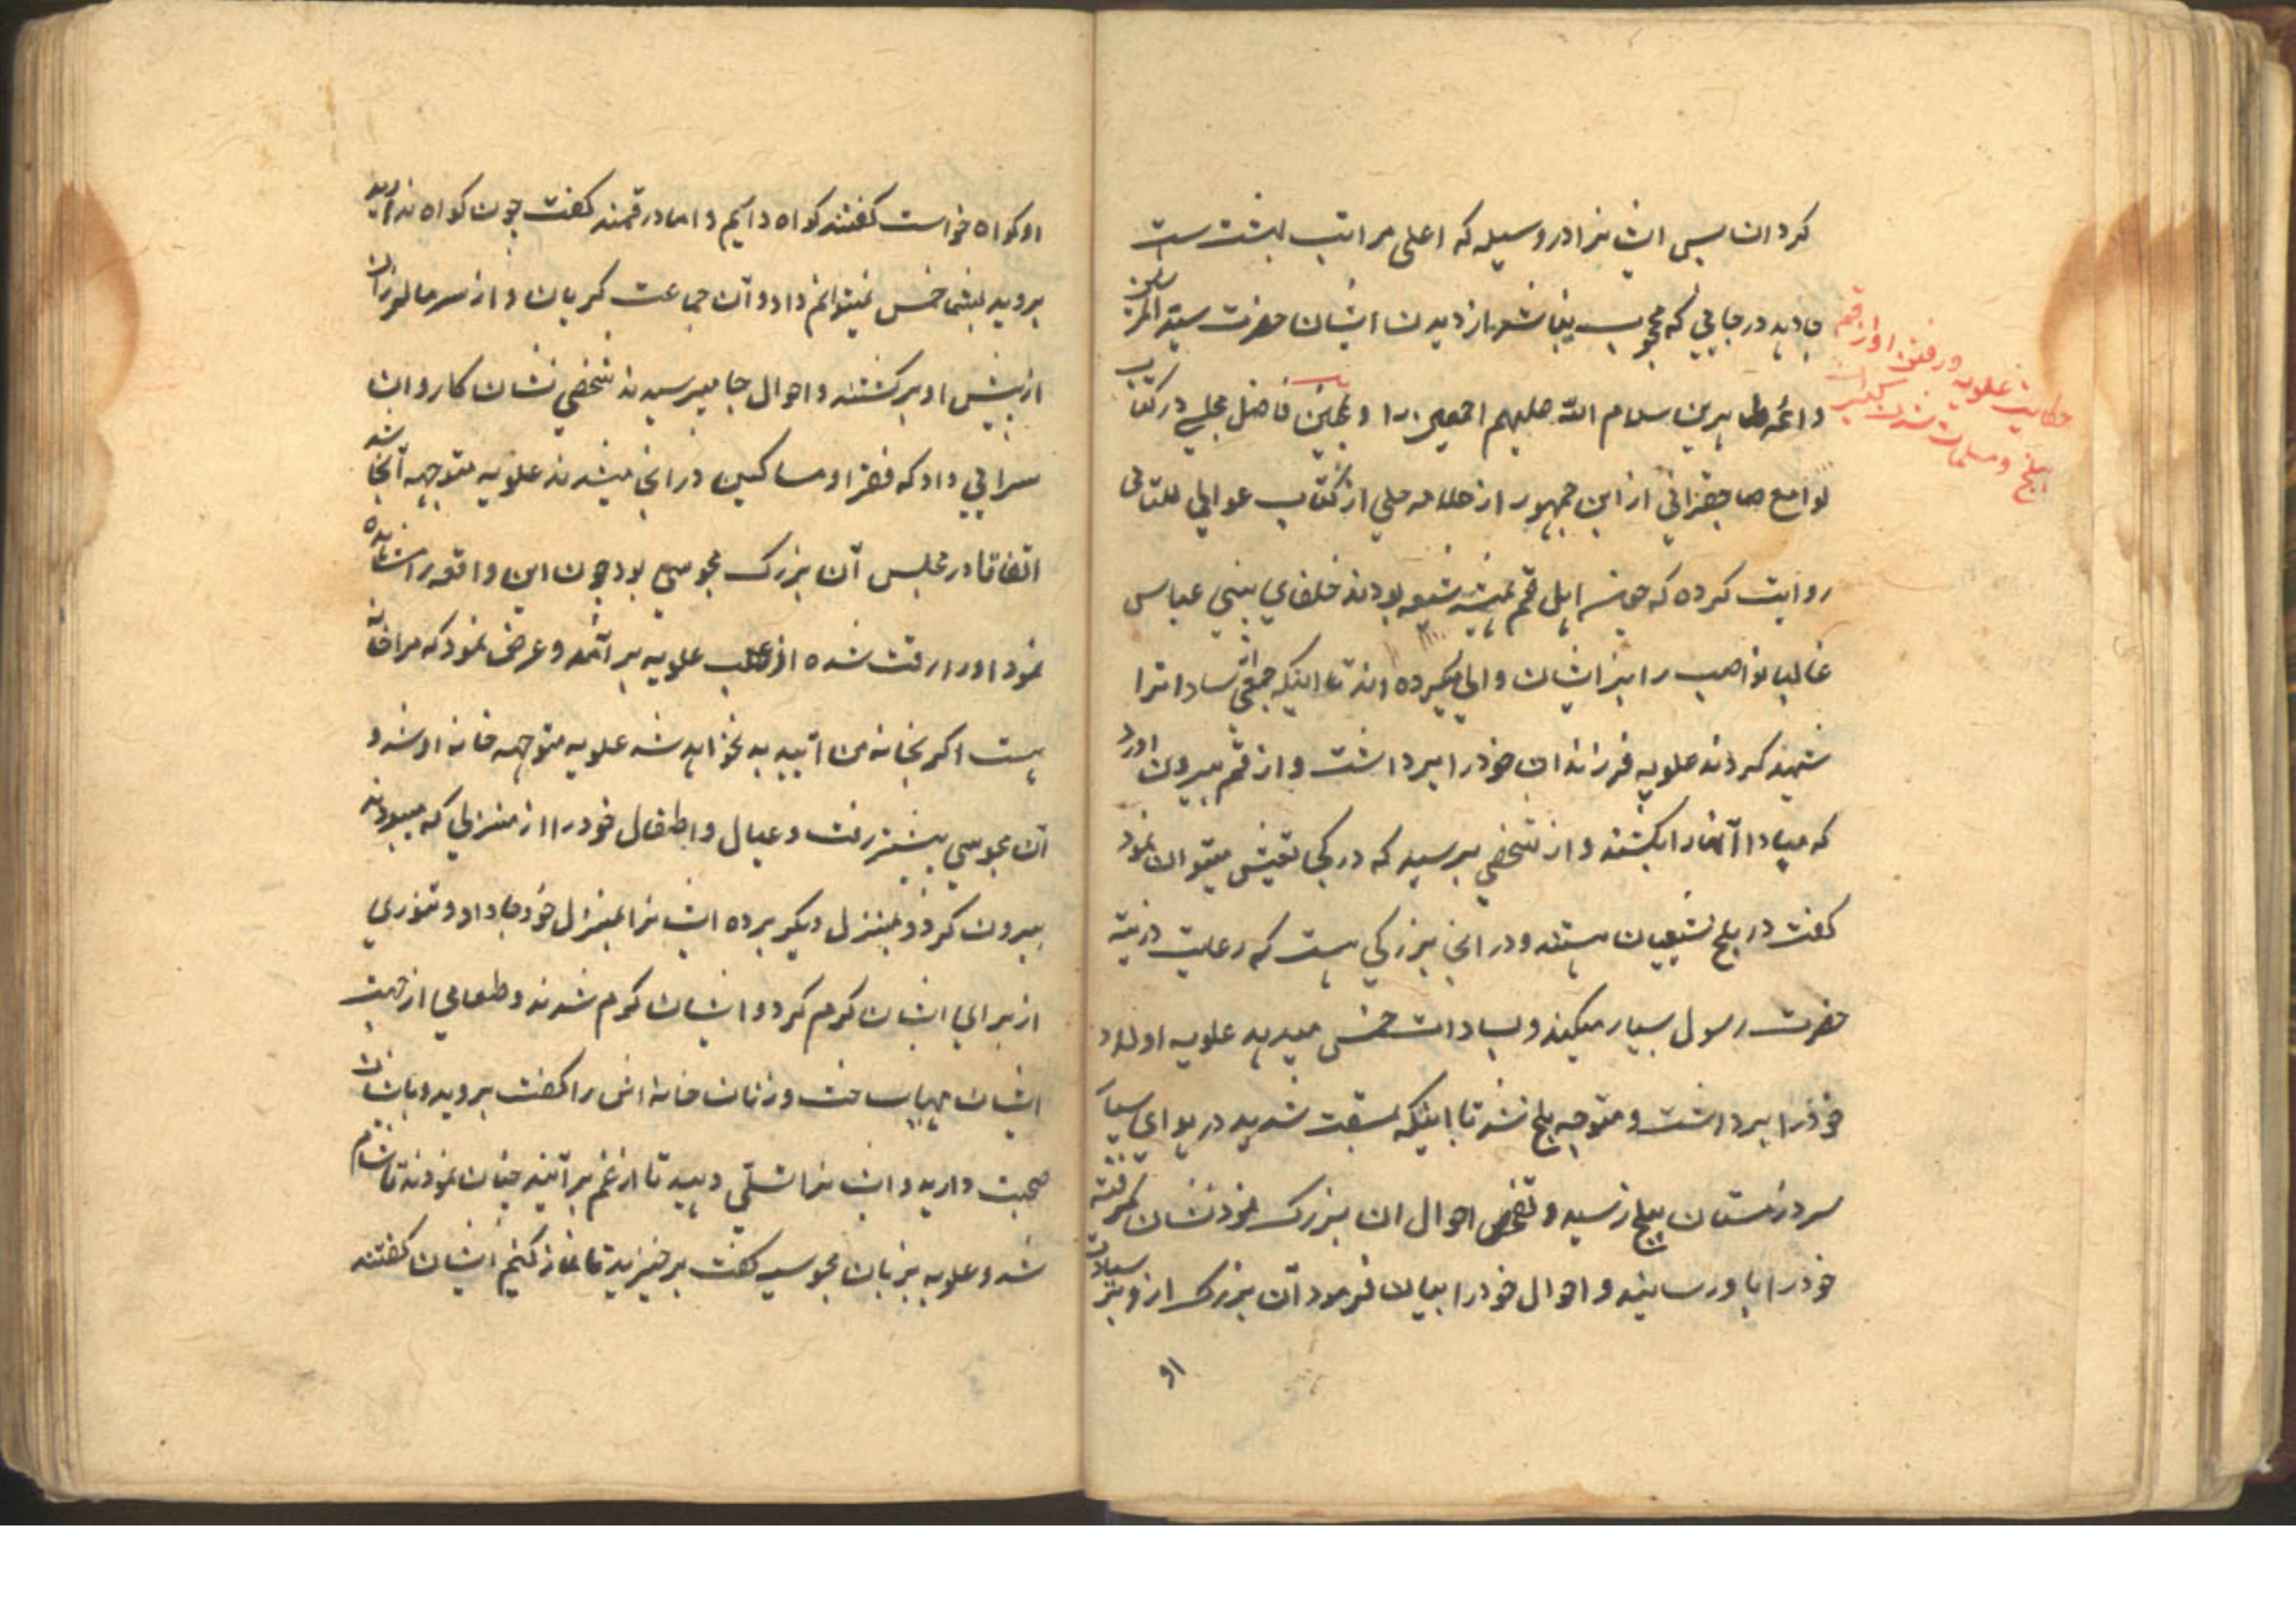 کردان پس ایشانرا در وسیله که اعلی مراتب بهشت ست
جا دهد در جایی که محجوب نباشند از دیدن ایشان حضرت سید المرسلین
و ائمه طاهرین سلام الله علیهم اجمعین را و همچنین فاضل مجلسی در کتاب
لوامع صاحبقرانی از ابن جمهور از علامه حلی از کتاب عوالی للئالی
روایت کرده که چون اهل قم همیشه شیعه بودند خلفای بنی عباس
غالبا نواصب را بر ایشان والی میکرده اند تا اینکه جمعی از سادات را
شهید کردند علویه فرزندان خود را برداشت و از قم بیرون آورد
که مبادا آنها را بکشند و از شخصی پرسید که در کجا تعیش میتوان نمود
گفت در بلخ شیعیان هستند و در آنجا بزرگی هست که رعایت ذریه
حضرت رسول بسیار میکند و بسادات خمس میدهد علویه اولاد
خود را برداشت و متوجه بلخ شد تا اینکه بمشقت شدید در هوای بسیار
سرد زمستان ببلخ رسید و تفحص احوال ان بزرگ نمود نشان گرفته
خود را باو رسانید و احوال خود را بیان فرمود آن بزرگ از و بر سیادت
او
حکایت علویه و رفتن او از قم
ببلخ و مسلمان شدن گبران
او کواه خواست کفتند کواه داریم و اما در قمند کفت چون کواه ندارید
بروید بشما خمس نمیتوانم داد و آن جماعت کریان و از سرما لرزان
از پیش او برکشتند و احوال جا میپرسیدند شخصی نشان کاروان
سرایی داد که فقرا و مساکین در انجا میشدند علویه متوجه آنجا شد
اتفاقا در مجلس آن بزرک مجوسی بود چون این واقعه را مشاهده
نمود او را رقت شده از عقب علویه بر آمد و عرض نمود که مرا خانه
هست اکر بخانه من آیید بد نخواهد شد علویه متوجه خانه او شد و
آن مجوسی پیشتر رفت و عیال و اطفال خود را از منزلی که میبودند
بیرون کرد و بمنزل دیکر برده ایشانرا بمنزل خود جا داد و تنوری
از برای ایشان کرم کرد و ایشان کرم شدند و طعامی از جهت
ایشان مهیا ساخت و زنان خانه اش را کفت بروید و با ایشان
صحبت دارید و ایشانرا تسلی دهید تا از غم بر آیند چنان نمودند تا شام
شد و علویه بزبان مجوسیه کفت برخیزید تا نماز کنیم ایشان کفتند